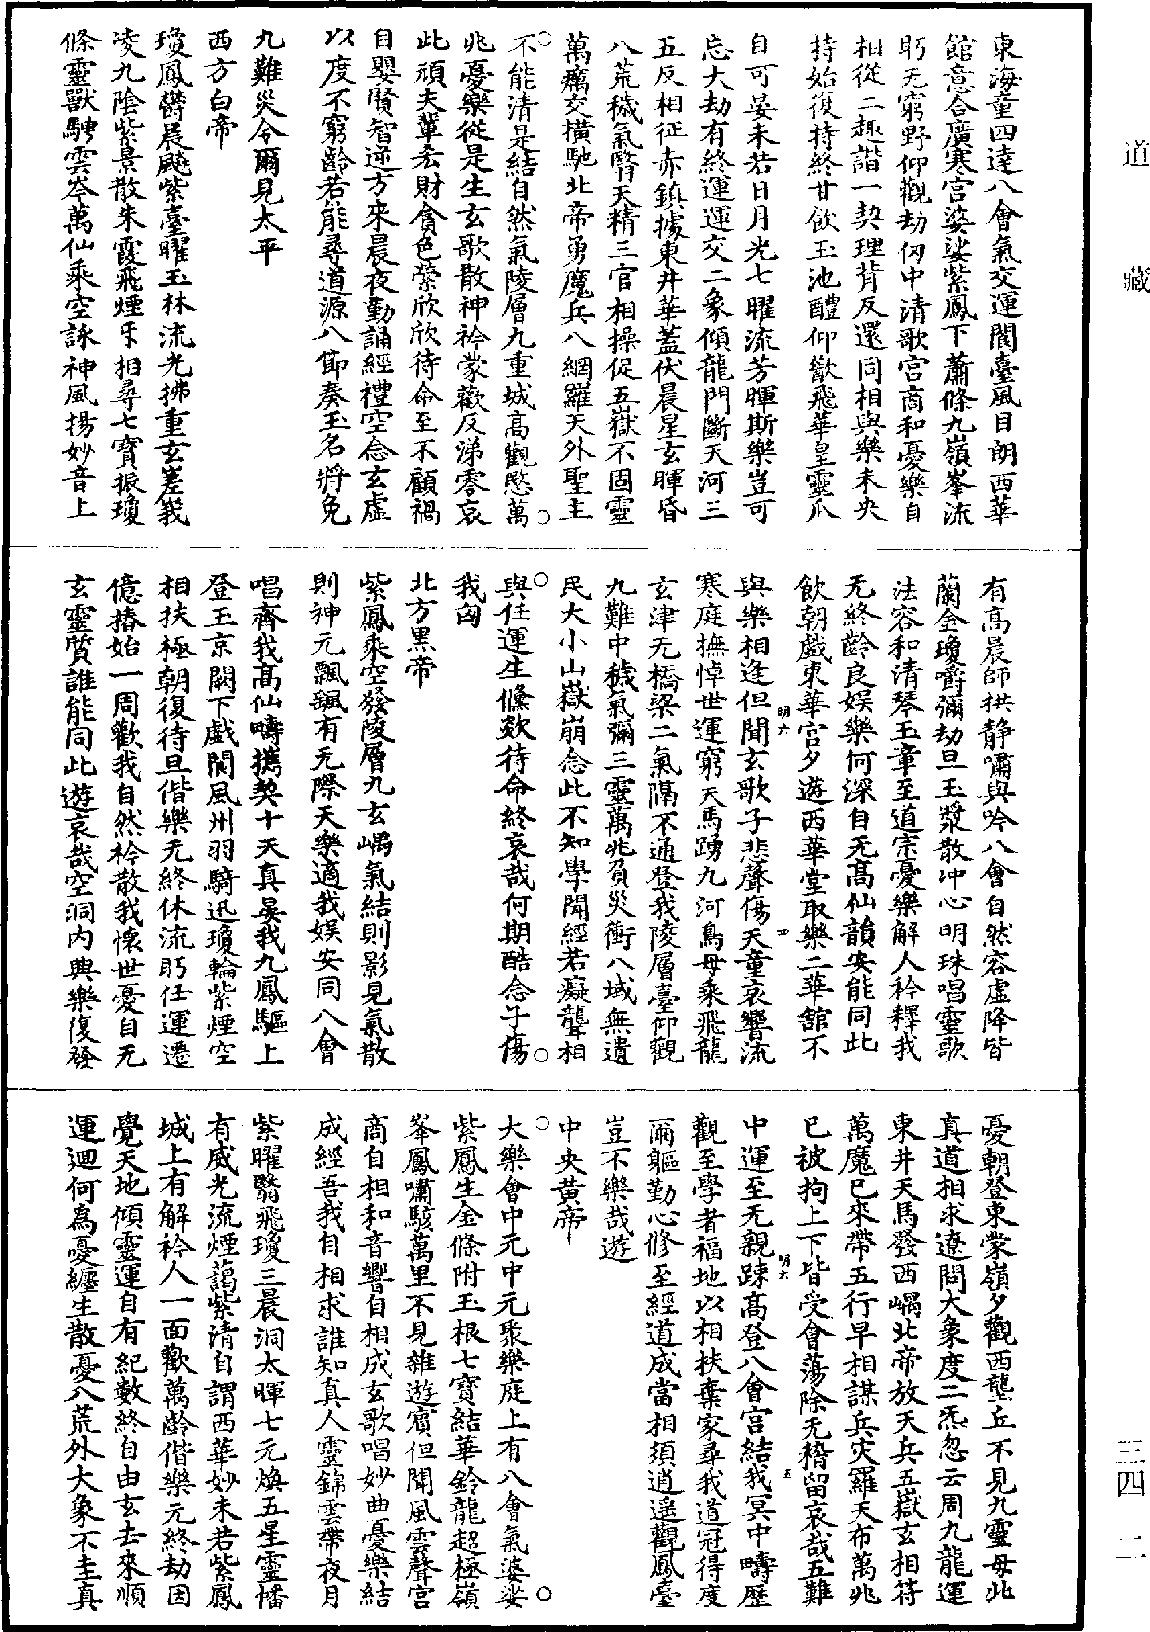 道藏
東海童四達八會氣交運閬臺風日朗西華
館意合廣寒宮婆娑紫鳳下蕭條九嶺峯流
眄无窮野仰觀劫仞中清歌宮商和憂樂自
相從二趣諧一契理背反還同相與樂未央
持始復持終甘飲玉池醴仰歠飛華皇靈爪
自可晏未若日月光七曜流芳暉斯樂豈可
忘大劫有終運運交二象傾龍門斷天河三
五反相征赤鎮據東井華蓋伏晨星玄暉昏
八荒穢氣翳天精三官相操促五嶽不固靈
萬癘交橫馳北帝勇魔兵八網羅天外聖主
不能清是結自然氣陵層九重城高觀愍萬
兆憂樂從是生玄歌散神衿蒙歡反涕零哀
此頑夫輩叅財貪色榮欣欣待命至不顧禍
自嬰賢智逆方來晨夜勤誦經禮空念玄虛
以度不窮齡若能尋道源八節奏玉名將免
九難災令爾見太平
西方白帝
瓊鳳欝晨飇紫臺曜玉林流光拂重玄嵳峩
凌九陰紫景散朱霞飛煙牙相尋七寶振瓊
條靈獸騁雲岑萬仙乘空詠神風揚妙音上
有高晨師拱靜嘯與吟八會自然容虛降皆
蘭金瓊嚼彌劫旦玉漿散冲心明珠唱靈歌
法容和清琴玉章至道宗憂樂解人衿釋我
无終齡良娛樂何深自无高仙韻安能同此
飲朝戲東華宮夕遊西華堂取樂二華館不
與樂相逢但聞玄歌子悲聲傷天童哀響流
寒庭撫悼世運窮天馬踴九河鳥母乘飛龍
玄津无橋梁二氣隔不通登我陵層臺仰觀
九難中穢氣彌三靈萬兆負災衝八域無遺
民大小山嶽崩念此不知學聞經若癡聾相
與任運生儵欻待命終哀哉何期酷念子傷
我囪
北方黑帝
紫鳳乘空發陵層九玄嵎氣結則影見氣散
則神元飄颻有无際天樂適我娛安同八會
唱齊我高仙疇攜契十天真晏我九鳳驅上
登玉京闕下戲閬風州羽騎迅瓊輪紫煙空
相扶極朝復待旦偕樂无終休流眄任運遷
億椿始一周歡我自然衿散我懷世憂自无
玄靈質誰能同此遊哀哉空洞內與樂復發
憂朝登東蒙嶺夕觀西龔丘不見九靈母北
真道相求遼閴大象度二炁忽云周九龍運
東井天馬發西嵎北帝放天兵五嶽玄相符
萬魔已來帶五行早相謀兵灾羅天布萬兆
已被拘上下皆受會蕩除无稽留哀哉五難
中運至无親踈高登八會宮結我冥中疇歷
觀至學者福地以相扶棄家尋我道冠得度
爾軀勤心修至經道成當相須逍遥觀鳳臺
豈不樂哉遊
中央黃帝
大樂會中元中元聚樂庭上有八會氣婆娑
紫鳳生金條附玉根七寶結華鈴龍超極嶺
峯鳳嘯駭萬里不見雜遊賓但聞風雲聲宮
商自相和音響自相成玄歌唱妙曲憂樂結
成經吾我自相求誰知真人靈錦雲帶夜月
紫曜翳飛瓊三晨洞太暉七元煥五星靈幡
有威光流煙藹紫清自謂西華妙未若紫鳳
城上有解衿人一面歡萬齡偕樂元終劫因
覺天地傾靈運自有紀數終自由玄去來順
運迴何為憂纏生散憂八荒外大象不圭真
三四 二